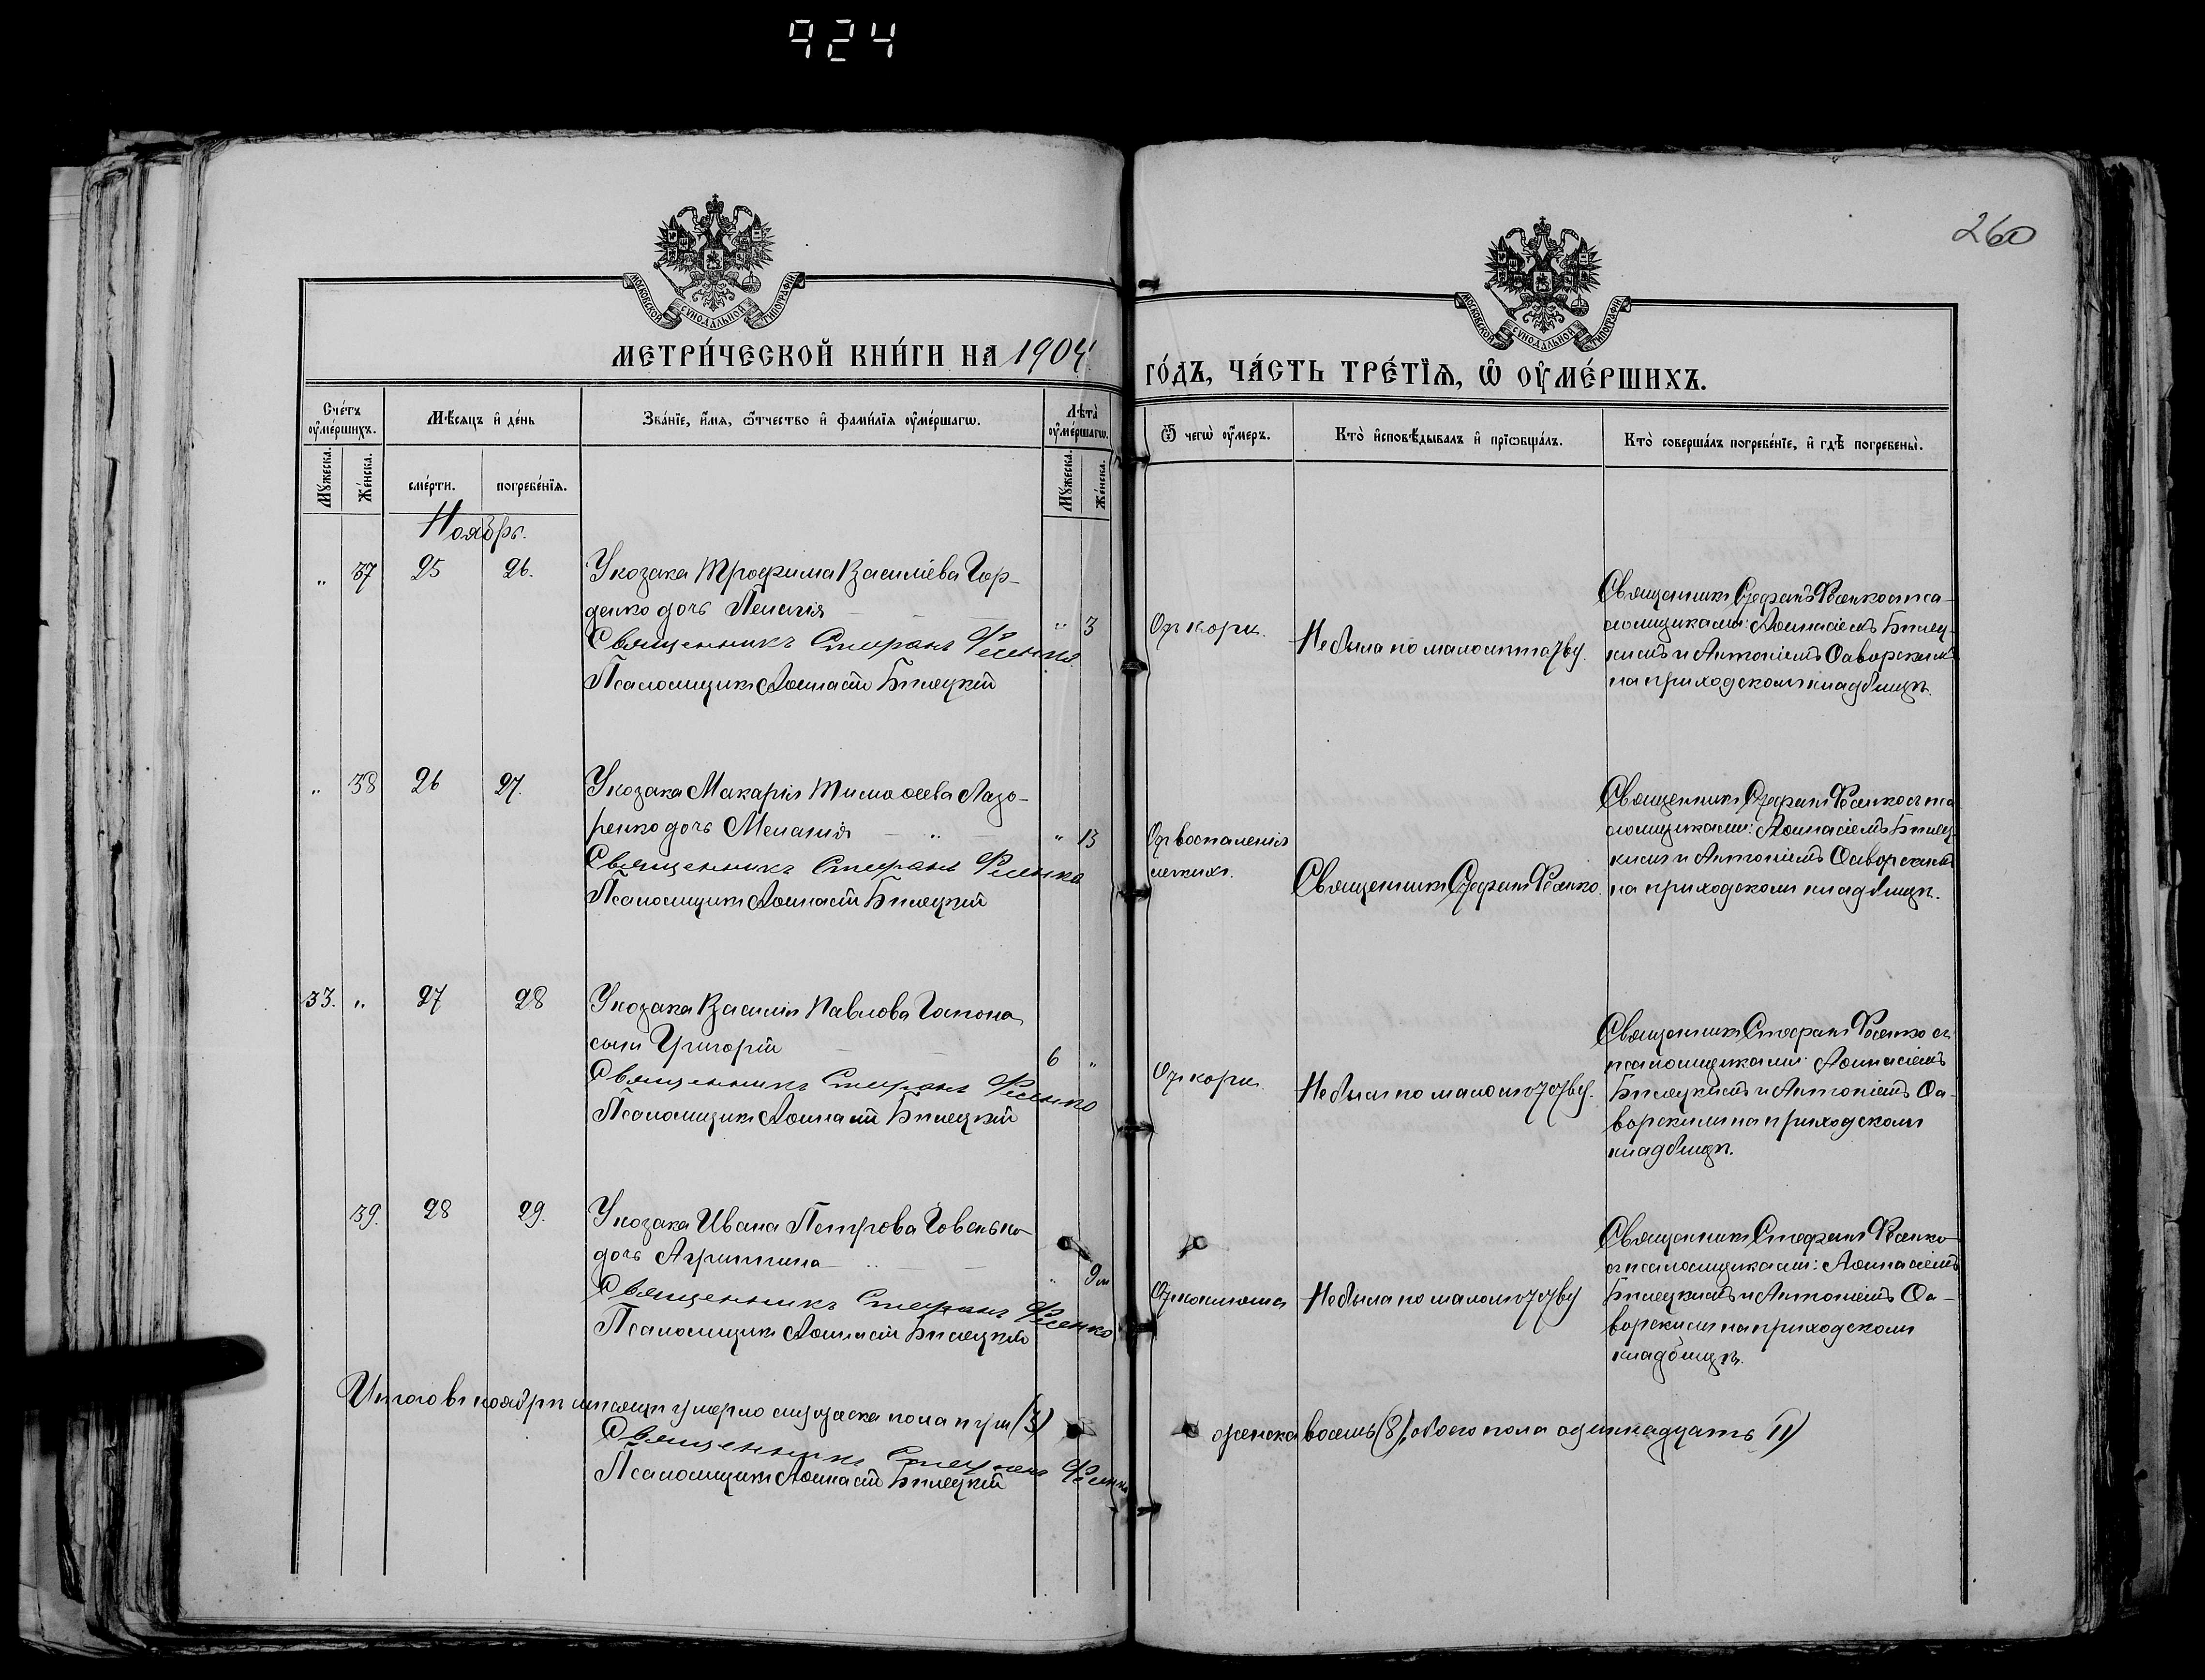 924
260
МОСКОВСКОЙ СУНОДАЛЬНОЙ ТИПОГРАФІИ
МОСКОВСКОЙ СУНОДАЛЬНОЙ ТИПОГРАФІИ
МЕТРИ́ЧЕСКОЙ КНИ́ГИ НА 1904
ГО́ДЪ, ЧА́СТЬ ТРЕ́ТЇѦ, Ѡ҆ ОУ҆МЕ́РШИХЪ.
Сче́тъ оу҆ме́ршихъ.
Мꙋ́жеска.
Же́нска.
Мѣ́сяцъ и҆ де́нь
сме́рти.
погребе́нїѧ.
Зва́нїе, и҆́мѧ, ѻ҆́тчество и҆ фами́лїѧ оу҆ме́ршагѡ.
Лѣ́та оу҆ме́ршагѡ.
Мꙋ́жеска.
Же́нска.
Ѿ чегѡ̀ оу҆́меръ.
Кто̀ и҆сповѣ́дывалъ и҆ прїѡбща́лъ.
Кто̀ соверша́лъ погребе́нїе, и҆ гдѣ̀ погребены̀.
Ноябрь.
„ 37 25 26.
У козака Трофима Василіева Гор-
денко дочь Пелагія
Священникъ Стефанъ Фесенко
Псаломщикъ Аѳанасій Билецкій
„ 3
Отъ кори.
Не была по малолѣтству.
Священникъ Стефанъ Фесенко съ пса-
ломщиками: Аѳанасіемъ Билец-
кимъ и Антоніемъ Саворскимъ
на приходскомъ кладбищѣ.
„ 38 26 27.
У козака Макарія Тимоѳеева Лазо-
ренко дочь Меланія
Священникъ Стефанъ Фесенко
Псаломщикъ Аѳанасій Билецкій
„ 13
Отъ воспаленія
легкихъ.
Священникъ Стефанъ Фесенко.
Священникъ Стефанъ Фесенко съ пса-
ломщиками: Аѳанасіемъ Билец-
кимъ и Антоніемъ Саворскимъ
на приходскомъ кладбищѣ.
33. „ 27 28
У козака Василія Павлова Гапона
сынъ Григорій
Священникъ Стефанъ Фесенко
Псаломщикъ Аѳанасій Билецкій
6 „
Отъ кори.
Не былъ по малолѣтству.
Священникъ Стефанъ Фесенко съ
псаломщиками: Аѳанасіемъ
Билецкимъ и Антоніемъ Са-
ворскимъ на приходскомъ
кладбищѣ.
39. 28 29.
У козака Ивана Петрова Говенько
дочь Агрипина
Священникъ Стефанъ Фесенко
Псаломщикъ Аѳанасій Билецкій
„ 9 м
Отъ коклюша
Не была по малолѣтству
Священникъ Стефанъ Фесенко
съ псаломщиками: Аѳанасіемъ
Билецкимъ и Антоніемъ Са-
ворскимъ на приходскомъ
кладбищѣ.
Итого въ ноябрѣ мѣсяцѣ умерло мужеска пола три (3)
женска восемь (8), обоего пола одинадцать 11)
Священникъ Стефанъ Фесенко
Псаломщикъ Аѳанасій Билецкій